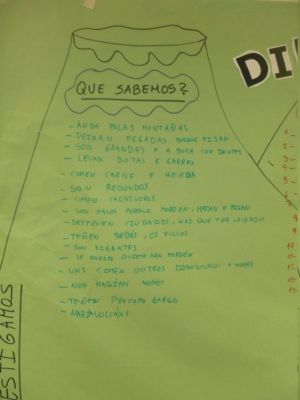 QUE SABEMOS?
DI
— ANDA POLAS MONTAÑAS
— DEIXAN PEGADAS PORQUE PISAN
— SON GRANDES E A BOCA CON DENTES
— LEVAN BOTAS E GARRAS
— COMEN CARNE E HERBA
— SON REDONDOS
— COMEN CARNÍVOROS
— SON MALOS PORQUE MORDEN, MATAN E PEGAN
— DESTRÚEN CIUDADES, HAI QUE TER COIDADO
— TEÑEN BEBÉS, OS FILLOS
— SON XIGANTES
— SE QUEDO QUIETO NON MORDEN
— UNS COMEN OUTROS DINOSAURIOS
— NON HABÍAN
— TEÑEN PESCOZO LARGO
— HABÍA VOLCÁNS
ESTIGAMOS